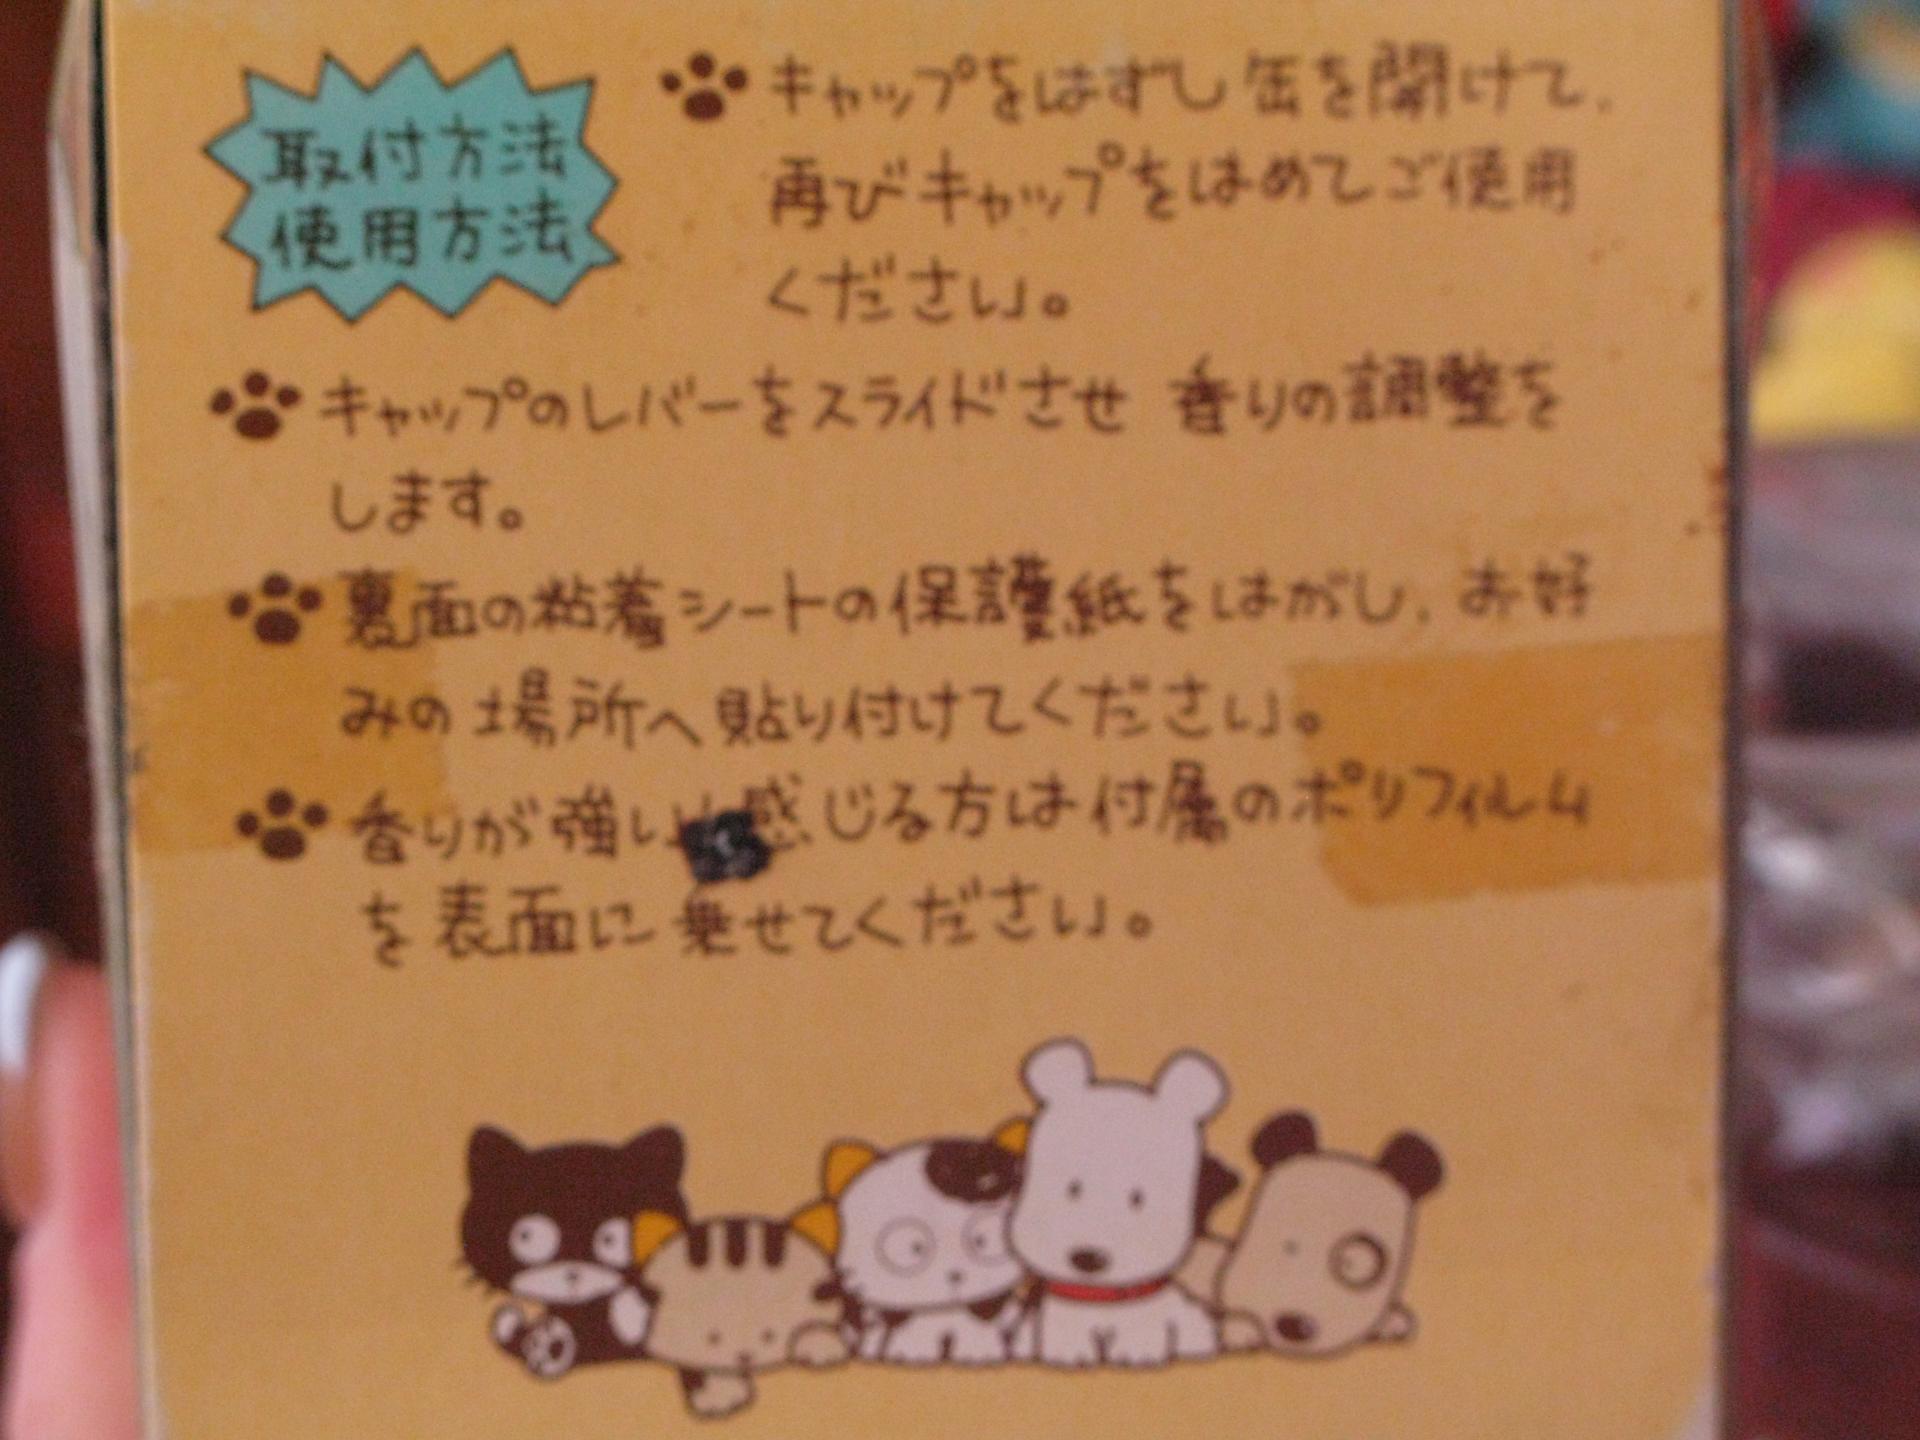 取付方法
使用方法
キャップをはずし缶を開けて、
再びキャップをはめてご使用
ください。
キャップのレバーをスライドさせ 香りの調整を
します。
裏面の粘着シートの保護紙をはがし、お好
みの場所へ貼り付けてください。
香りが強い 感じる方は付属のポリフィルム
を表面に乗せてください。